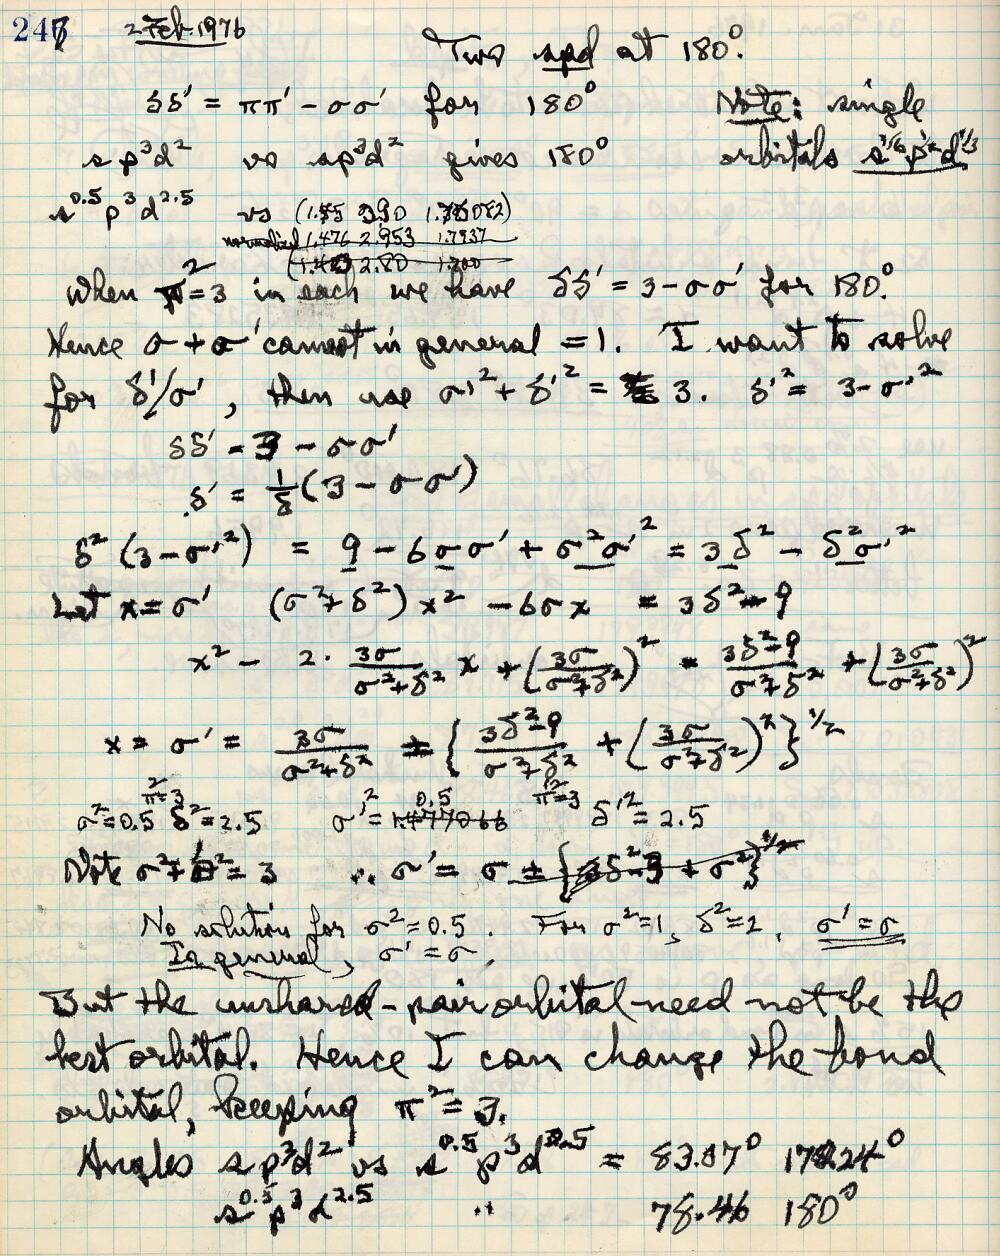 247 2 Feb. 1976
Two spd at 180°.
δδ' = ππ' - σσ' for 180° Note: single
s p³d² vs sp³d² gives 180° orbitals
s^0.5 p³ d^2.5 vs
normalized 1.476 2.953 1.7937
2.80
When π²=3 in each we have δδ' = 3-σσ' for 180°.
Hence σ+σ' cannot in general = 1. I want to solve
for δ'/σ', then use σ'² + δ'² = 3. δ'² = 3-σ'²
δδ' = 3 - σσ'
δ' = 1/δ (3 - σσ')
δ² (3-σ'²) = 9 - 6σσ' + σ²σ'² = 3δ² - δ²σ'²
Let x = σ' (σ²+δ²)x² - 6σx = 3δ²-9
x² - 2· 3σ/(σ²+δ²) x + (3σ/(σ²+δ²))² = (3δ²-9)/(σ²+δ²) + (3σ/(σ²+δ²))²
x = σ' = 3σ/(σ²+δ²) ± {(3δ²-9)/(σ²+δ²) + (3σ/(σ²+δ²))²}^1/2
π²=3 0.5 π²=3
σ²=0.5 δ²=2.5 σ'² = 1.477066 δ'² = 2.5
Note σ²+δ²=3 ∴ σ' = σ ± {δ²-3 + σ²}^1/2
No solution for σ²=0.5. For σ²=1, δ²=2, σ'=σ
In general, σ'=σ.
But the unshared-pair orbital need not be the
best orbital. Hence I can change the bond
orbital, keeping π²=3.
Angles s p³d² vs s^0.5 p³ d^2.5 = 83.07° 178.24°
s^0.5 p³ d^2.5 " 78.46 180°